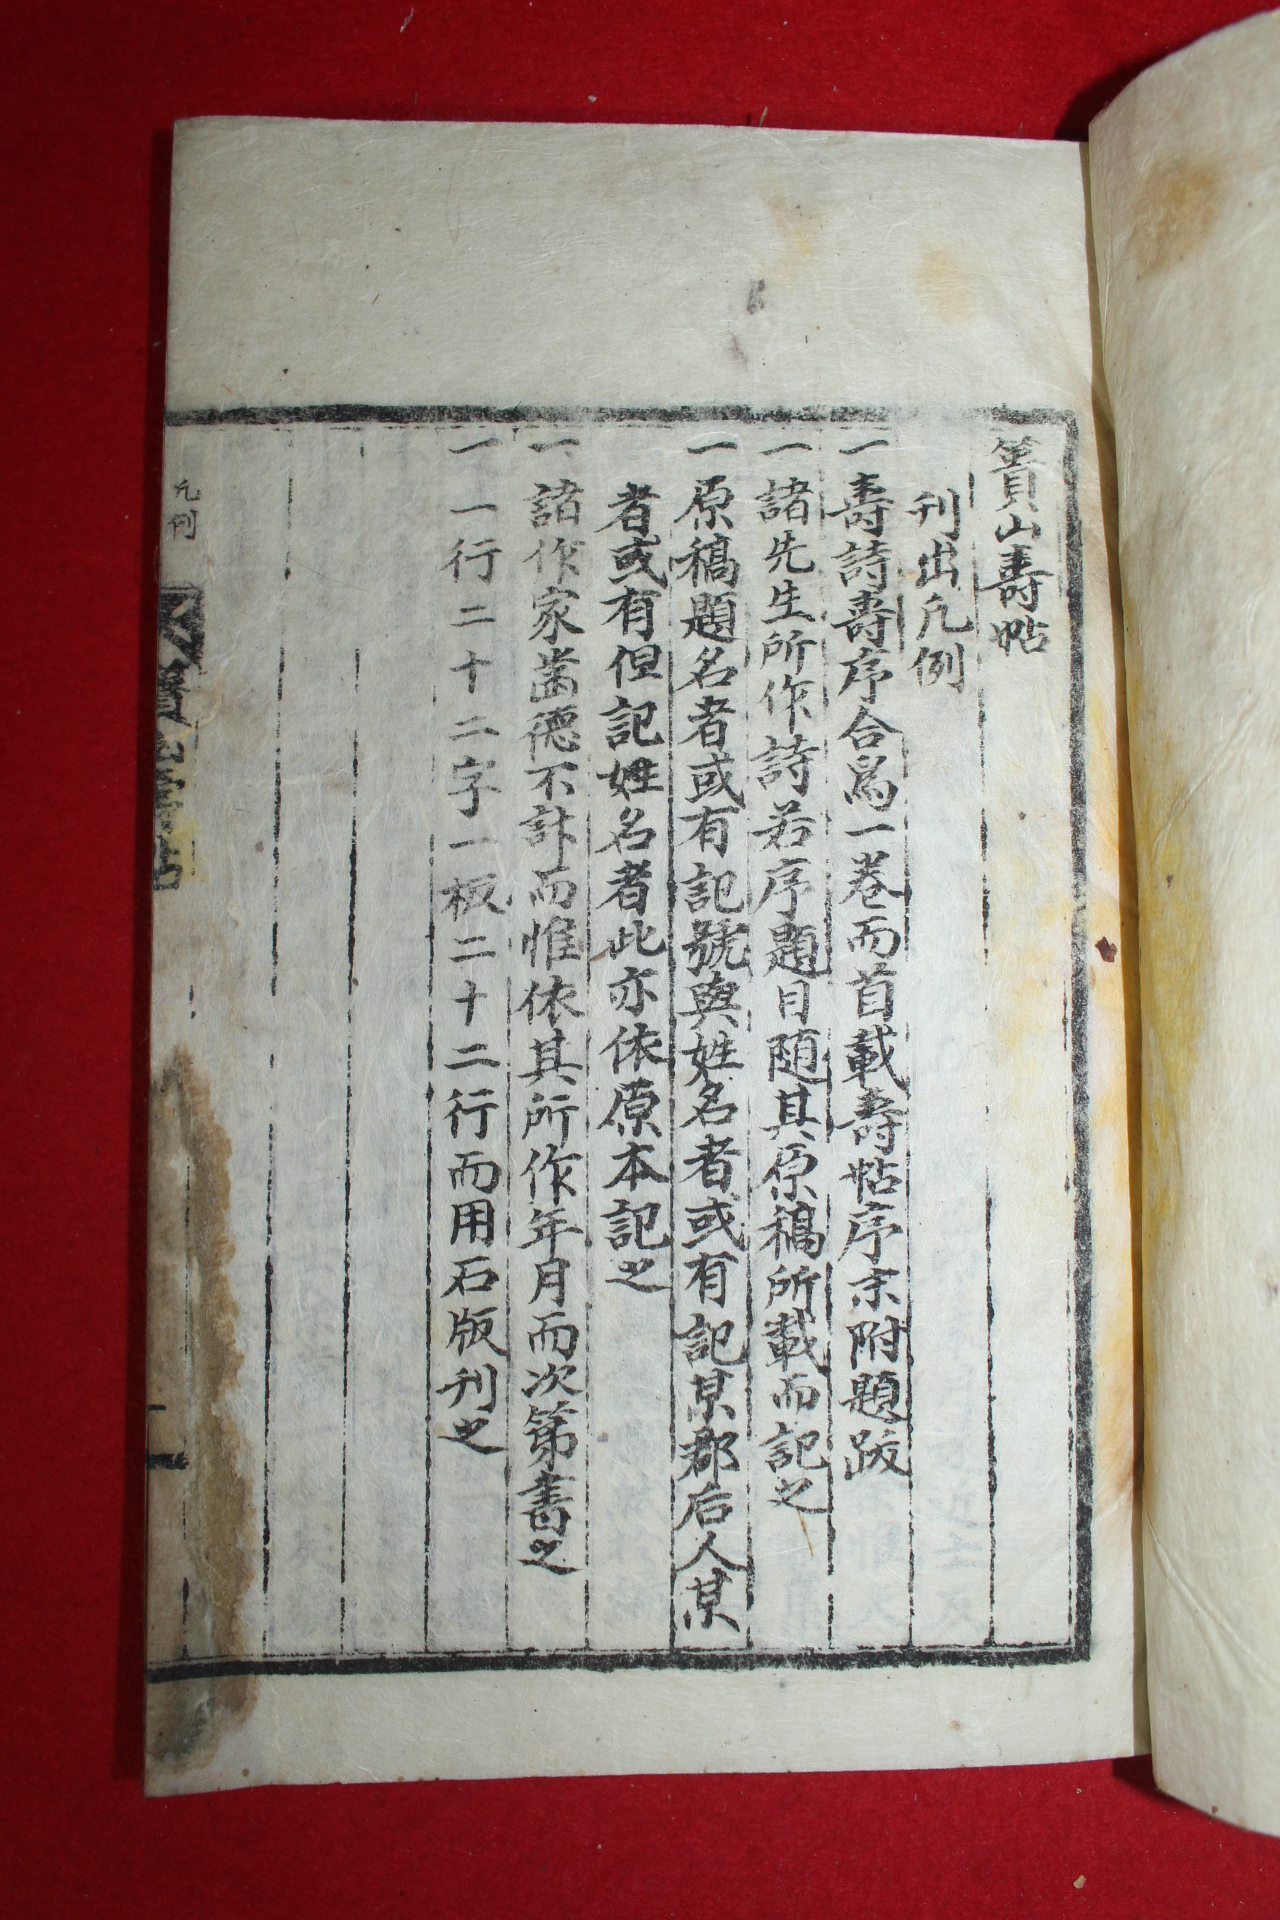 簣山壽帖
刊出凡例
一壽詩壽序合爲一卷而首載壽帖序末附題跋
一諸先生所作詩若序題目随其原稿所載而記之
一原稿題名者或有記號與姓名者或有記某郡后人某
者或有但記姓名者此亦依原本記之
一諸作家齒德不計而惟依其所作年月而次第書之
一一行二十二字一板二十二行而用石版刊之
凡例
山壽帖
一